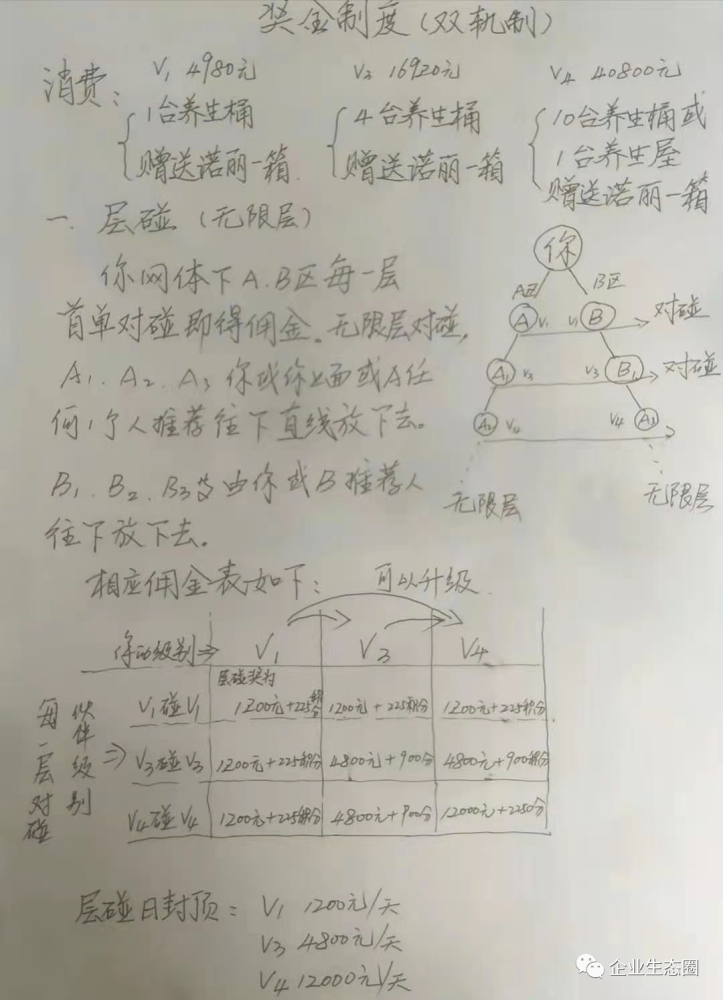 奖金制度(双轨制)
消费: V1 4980元 V3 16920元 V4 40800元
1台养生桶 4台养生桶 10台养生桶或
赠送诺丽一箱. 赠送诺丽一箱 1台养生屋
赠送诺丽一箱
一. 层碰(无限层)
你
你网体下A.B区每一层
A区 B区
首单对碰即得佣金。无限层对碰,
A V1 V1 B 对碰
A1. A2. A3 你或你上面或A任
A1 V3 V3 B1 对碰
何1个人推荐往下直线放下去。
A2 V4 V4 A3
B1. B2. B3 由你或B推荐人
无限层 无限层
往下放下去。
相应佣金表如下: 可以升级
级别⇒ V1 V3 V4
层碰奖为
V1碰V1 1200元+225积分 1200元+225积分 1200元+225积分
V3碰V3 1200元+225积分 4800元+900分 4800元+900积分
V4碰V4 1200元+225积分 4800元+900分 12000元+2250分
每一层对碰
伙伴级别
⇒
层碰日封顶: V1 1200元/天
V3 4800元/天
V4 12000元/天
企业生态圈